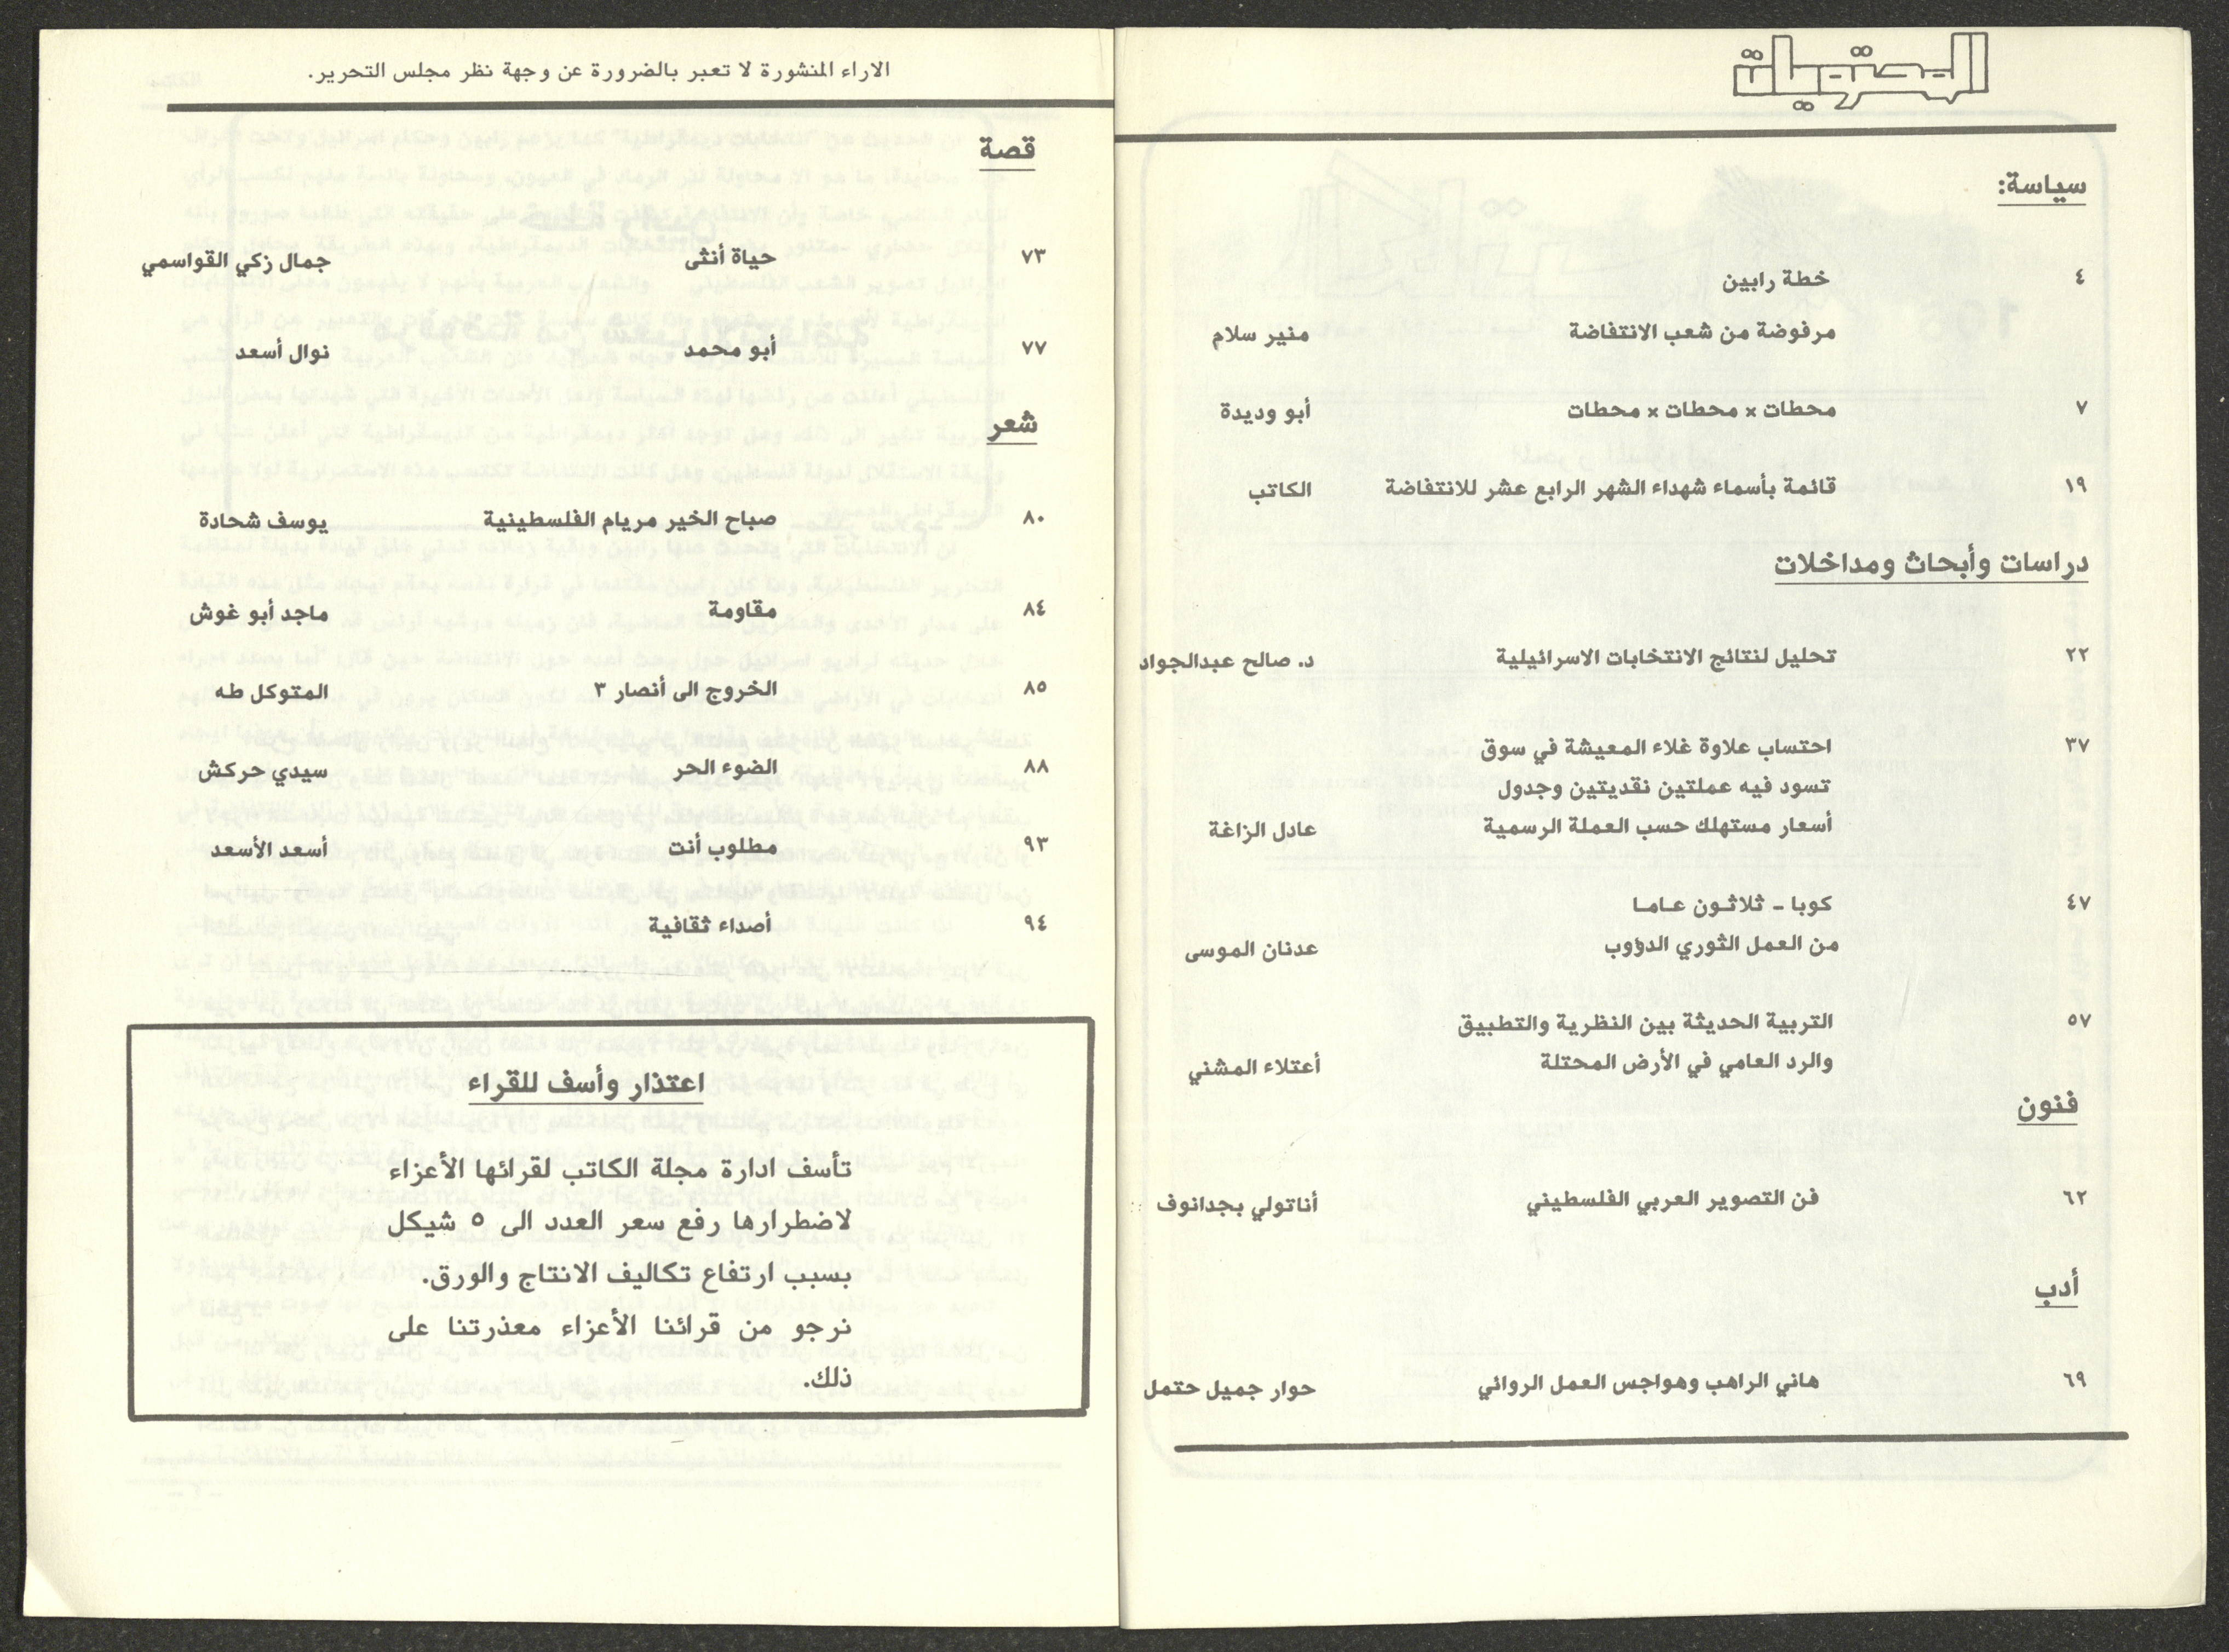 المحتويات
سياسة:
٤ خطة رابين
مرفوضة من شعب الانتفاضة منير سلام
٧ محطات × محطات × محطات أبو وديدة
١٩ قائمة بأسماء شهداء الشهر الرابع عشر للانتفاضة الكاتب
دراسات وأبحاث ومداخلات
٢٢ تحليل لنتائج الانتخابات الاسرائيلية د. صالح عبدالجواد
٣٧ احتساب علاوة غلاء المعيشة في سوق
تسود فيه عملتين نقديتين وجدول
أسعار مستهلك حسب العملة الرسمية عادل الزاغة
٤٧ كوبا - ثلاثون عاما
من العمل الثوري الدؤوب عدنان الموسى
٥٧ التربية الحديثة بين النظرية والتطبيق
والرد العامي في الأرض المحتلة أعتلاء المشني
فنون
٦٢ فن التصوير العربي الفلسطيني أناتولي بجدانوف
أدب
٦٩ هاني الراهب وهواجس العمل الروائي حوار جميل حتمل
الاراء المنشورة لا تعبر بالضرورة عن وجهة نظر مجلس التحرير.
قصة
٧٣ حياة أنثى جمال زكي القواسمي
٧٧ أبو محمد نوال أسعد
شعر
٨٠ صباح الخير مريام الفلسطينية يوسف شحادة
٨٤ مقاومة ماجد أبو غوش
٨٥ الخروج الى أنصار ٣ المتوكل طه
٨٨ الضوء الحر سيدي حركش
٩٣ مطلوب أنت أسعد الأسعد
٩٤ أصداء ثقافية
اعتذار وأسف للقراء
تأسف ادارة مجلة الكاتب لقرائها الأعزاء
لاضطرارها رفع سعر العدد الى ٥ شيكل
بسبب ارتفاع تكاليف الانتاج والورق.
نرجو من قرائنا الأعزاء معذرتنا على
ذلك.